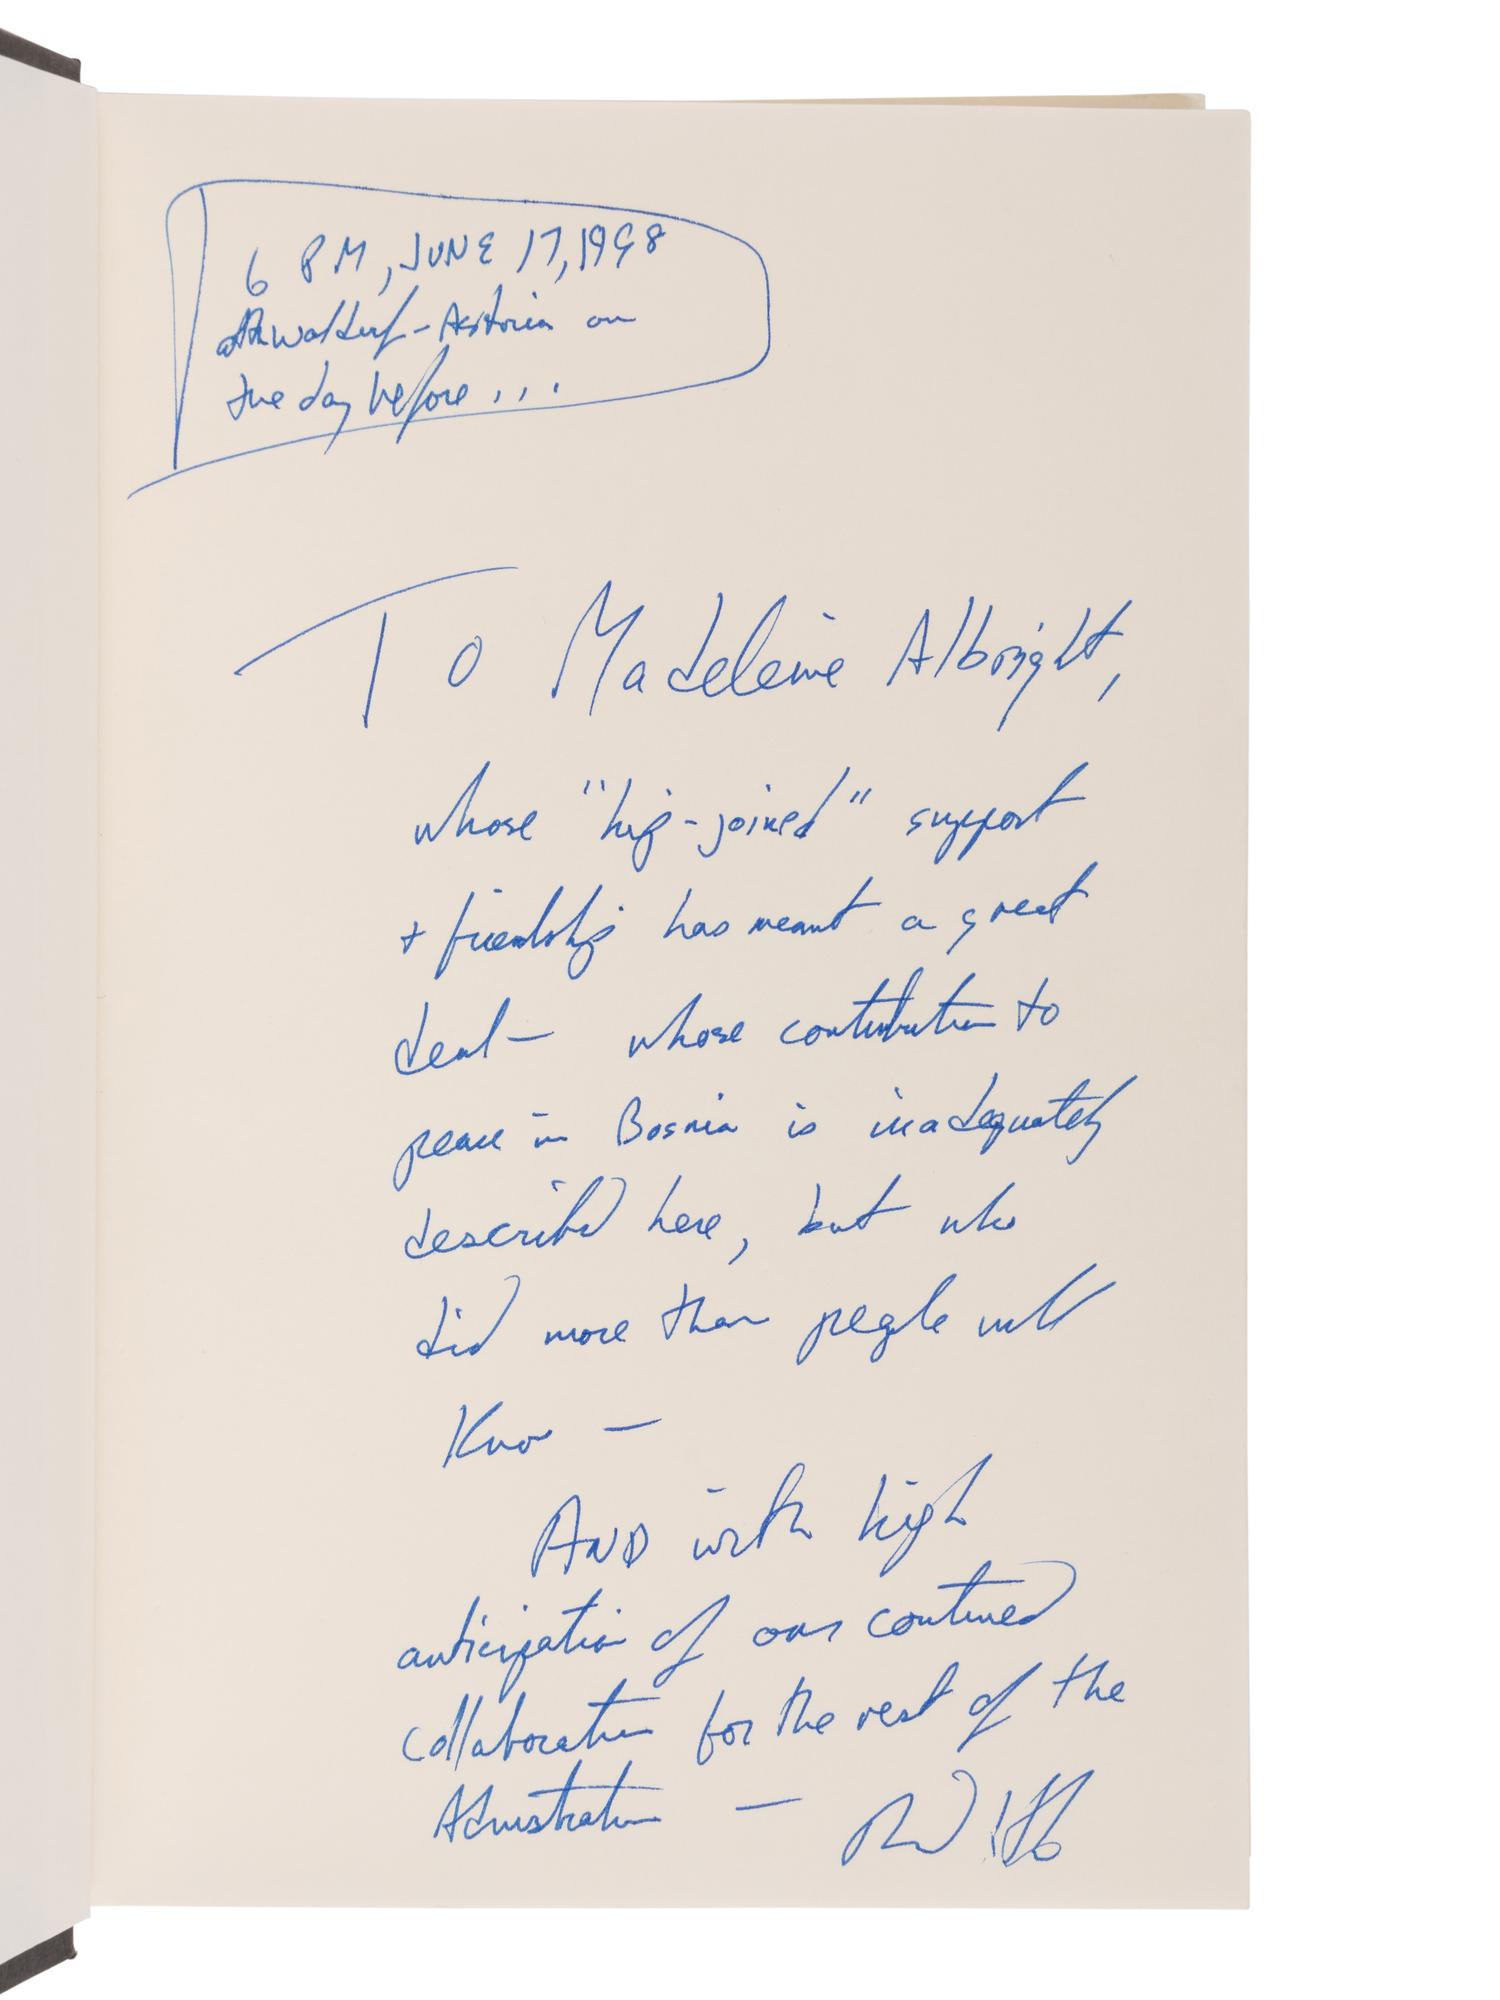 6 PM, JUNE 17, 1998
at the Waldorf-Astoria on
the day before...
To Madeleine Albright,
whose "hip-joined" support
+ friendship has meant a great
deal — whose contribution to
peace in Bosnia is inadequately
described here, but who
did more than people will
Know —
AND with high
anticipation of our continued
collaboration for the rest of the
Administration —